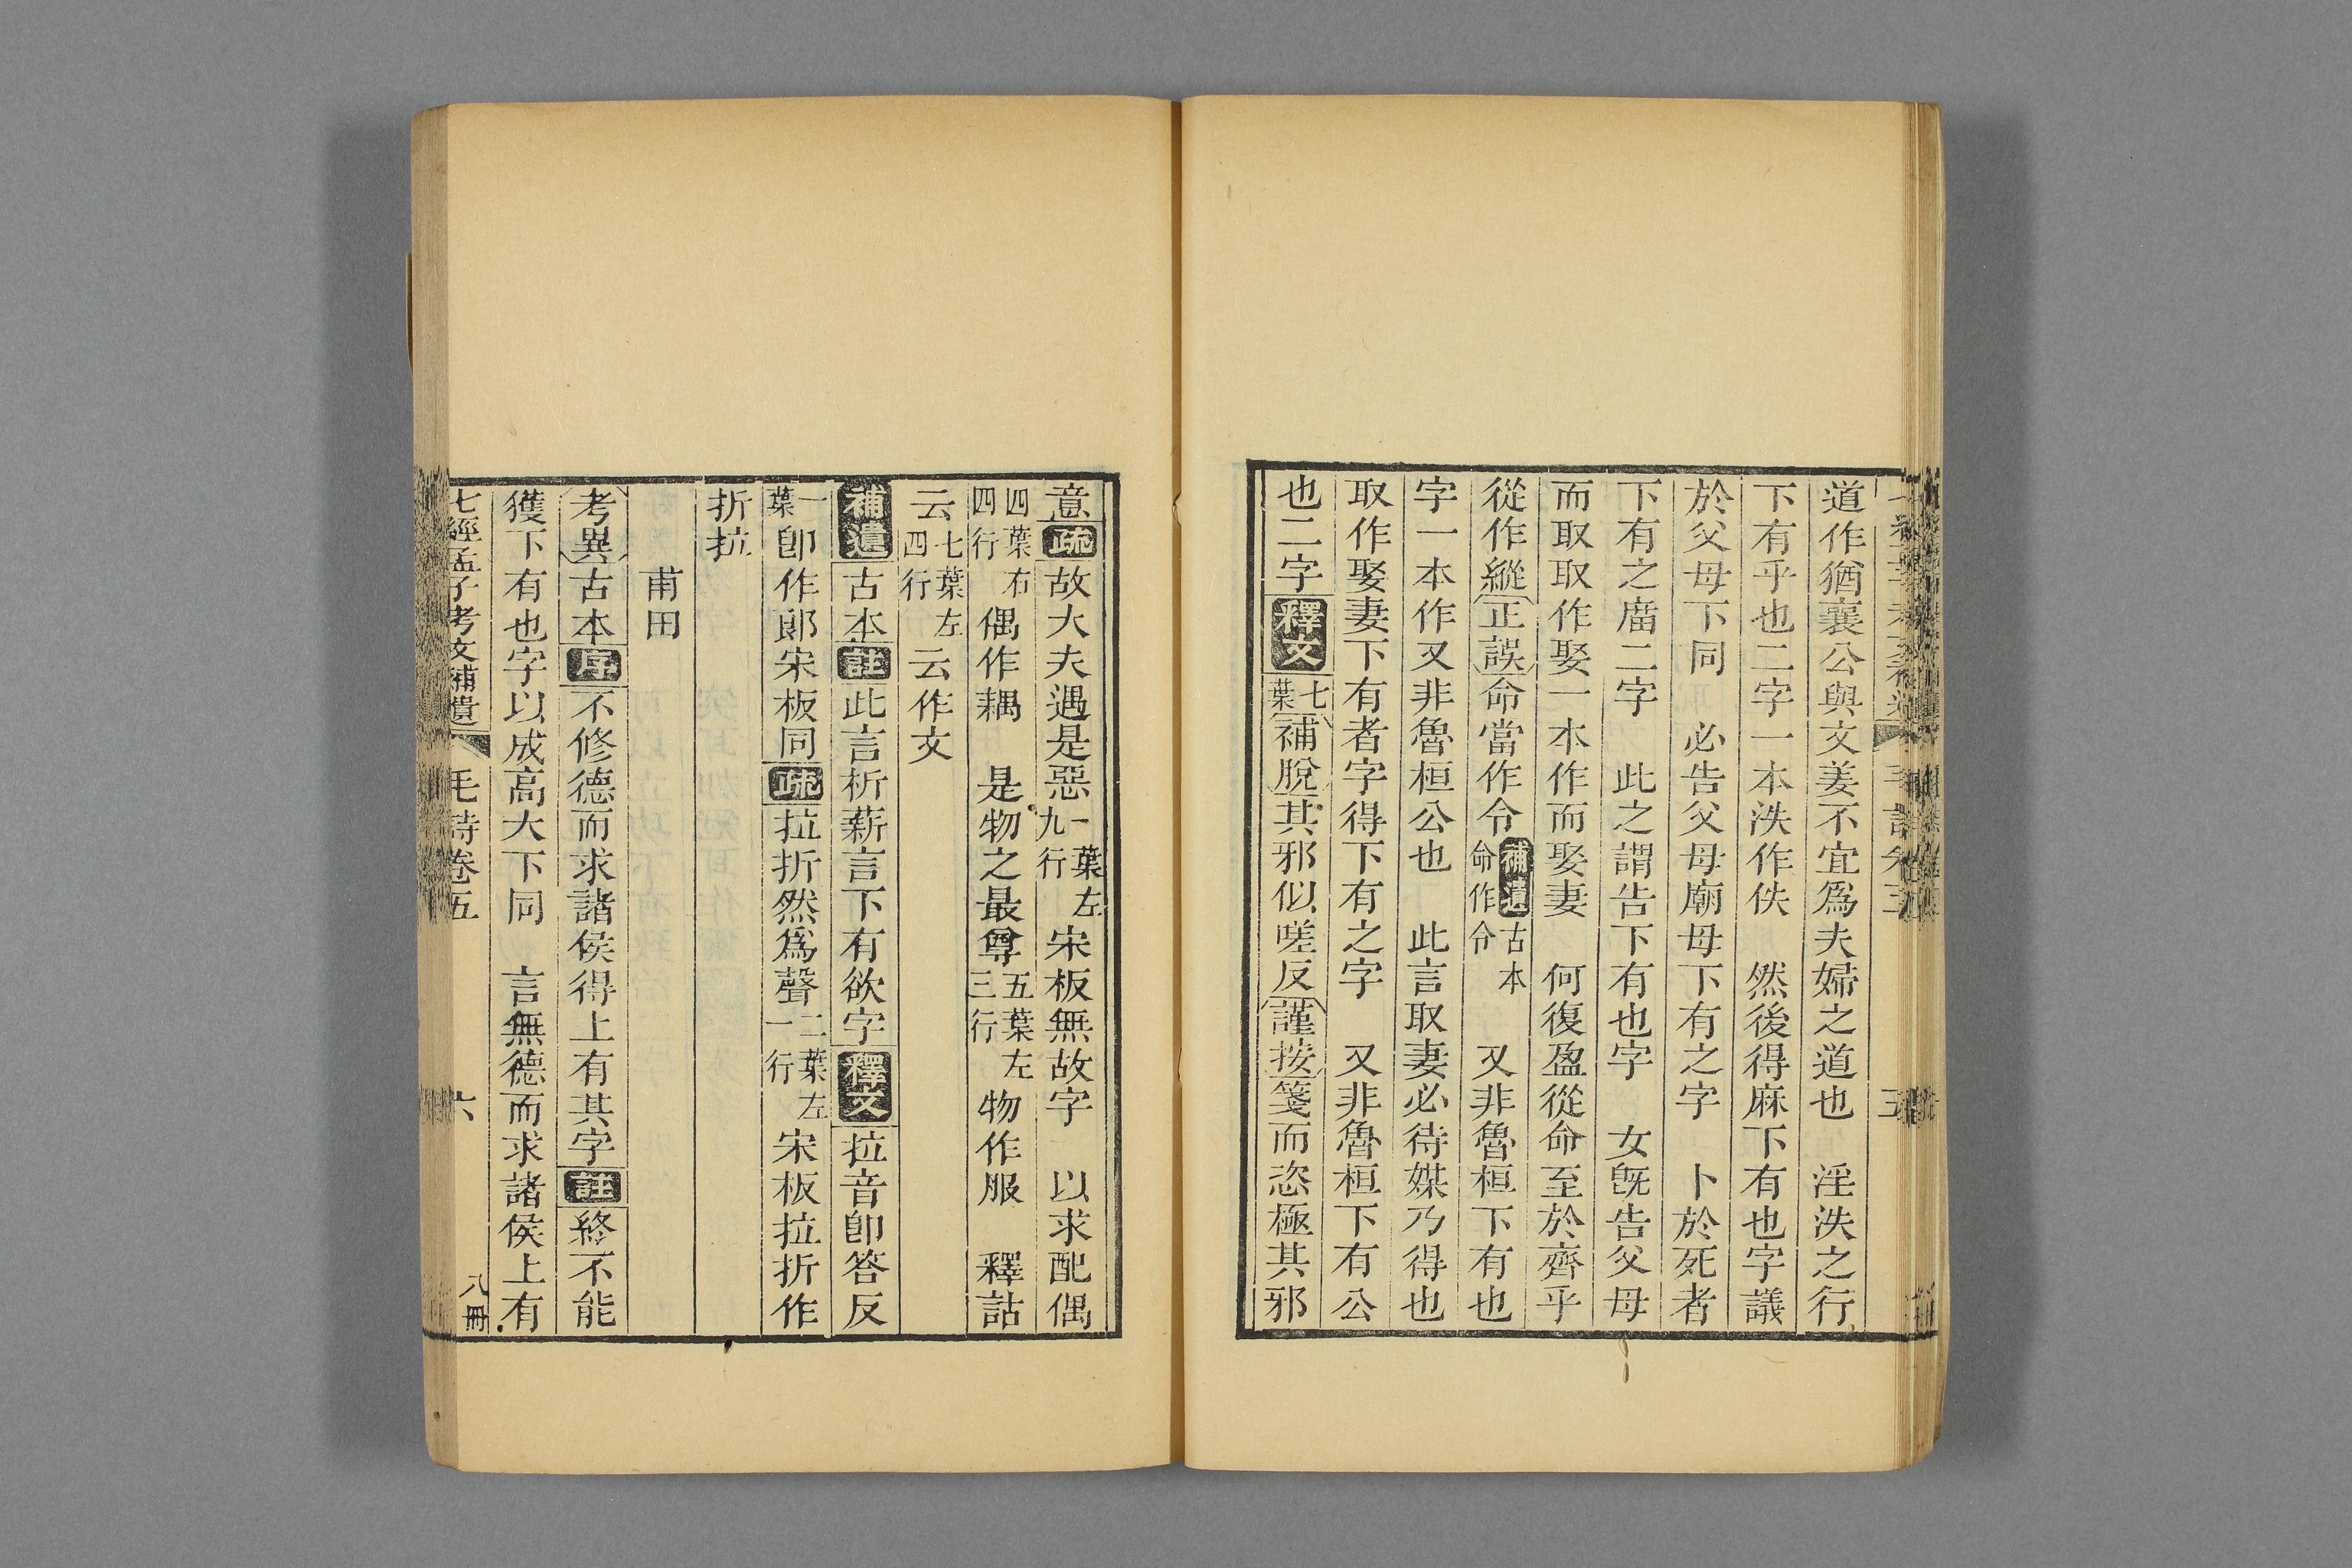 道作猶襄公與文姜不宜爲夫婦之道也 淫泆之行
下有乎也二字一本泆作佚 然後得麻下有也字議
於父母下同 必告父母廟母下有之字 卜於死者
下有之廟二字 此之謂告下有也字 女旣告父母
而取取作娶一本作而娶妻 何復盈從命至於齊乎
從作縱正誤命當作令補遺古本命作令 又非魯桓下有也
字一本作又非魯桓公也 此言取妻必待媒乃得也
取作娶妻下有者字得下有之字 又非魯桓下有公
也二字釋文七葉補脫其邪似嗟反謹按箋而恣極其邪
意疏故大夫遇是惡一葉左九行宋板無故字 以求配偶
四葉右四行偶作耦 是物之最尊五葉左三行物作服 釋詁
云七葉左四行云作文
補遺古本註此言析薪言下有欲字釋文拉音卽答反
一葉卽作郞宋板同疏拉折然爲聲二葉左一行宋板拉折作
折拉
甫田
考異古本序不修德而求諸侯得上有其字註終不能
獲下有也字以成高大下同 言無德而求諸侯上有
七經孟子考文補遺 毛詩卷五 六 八冊